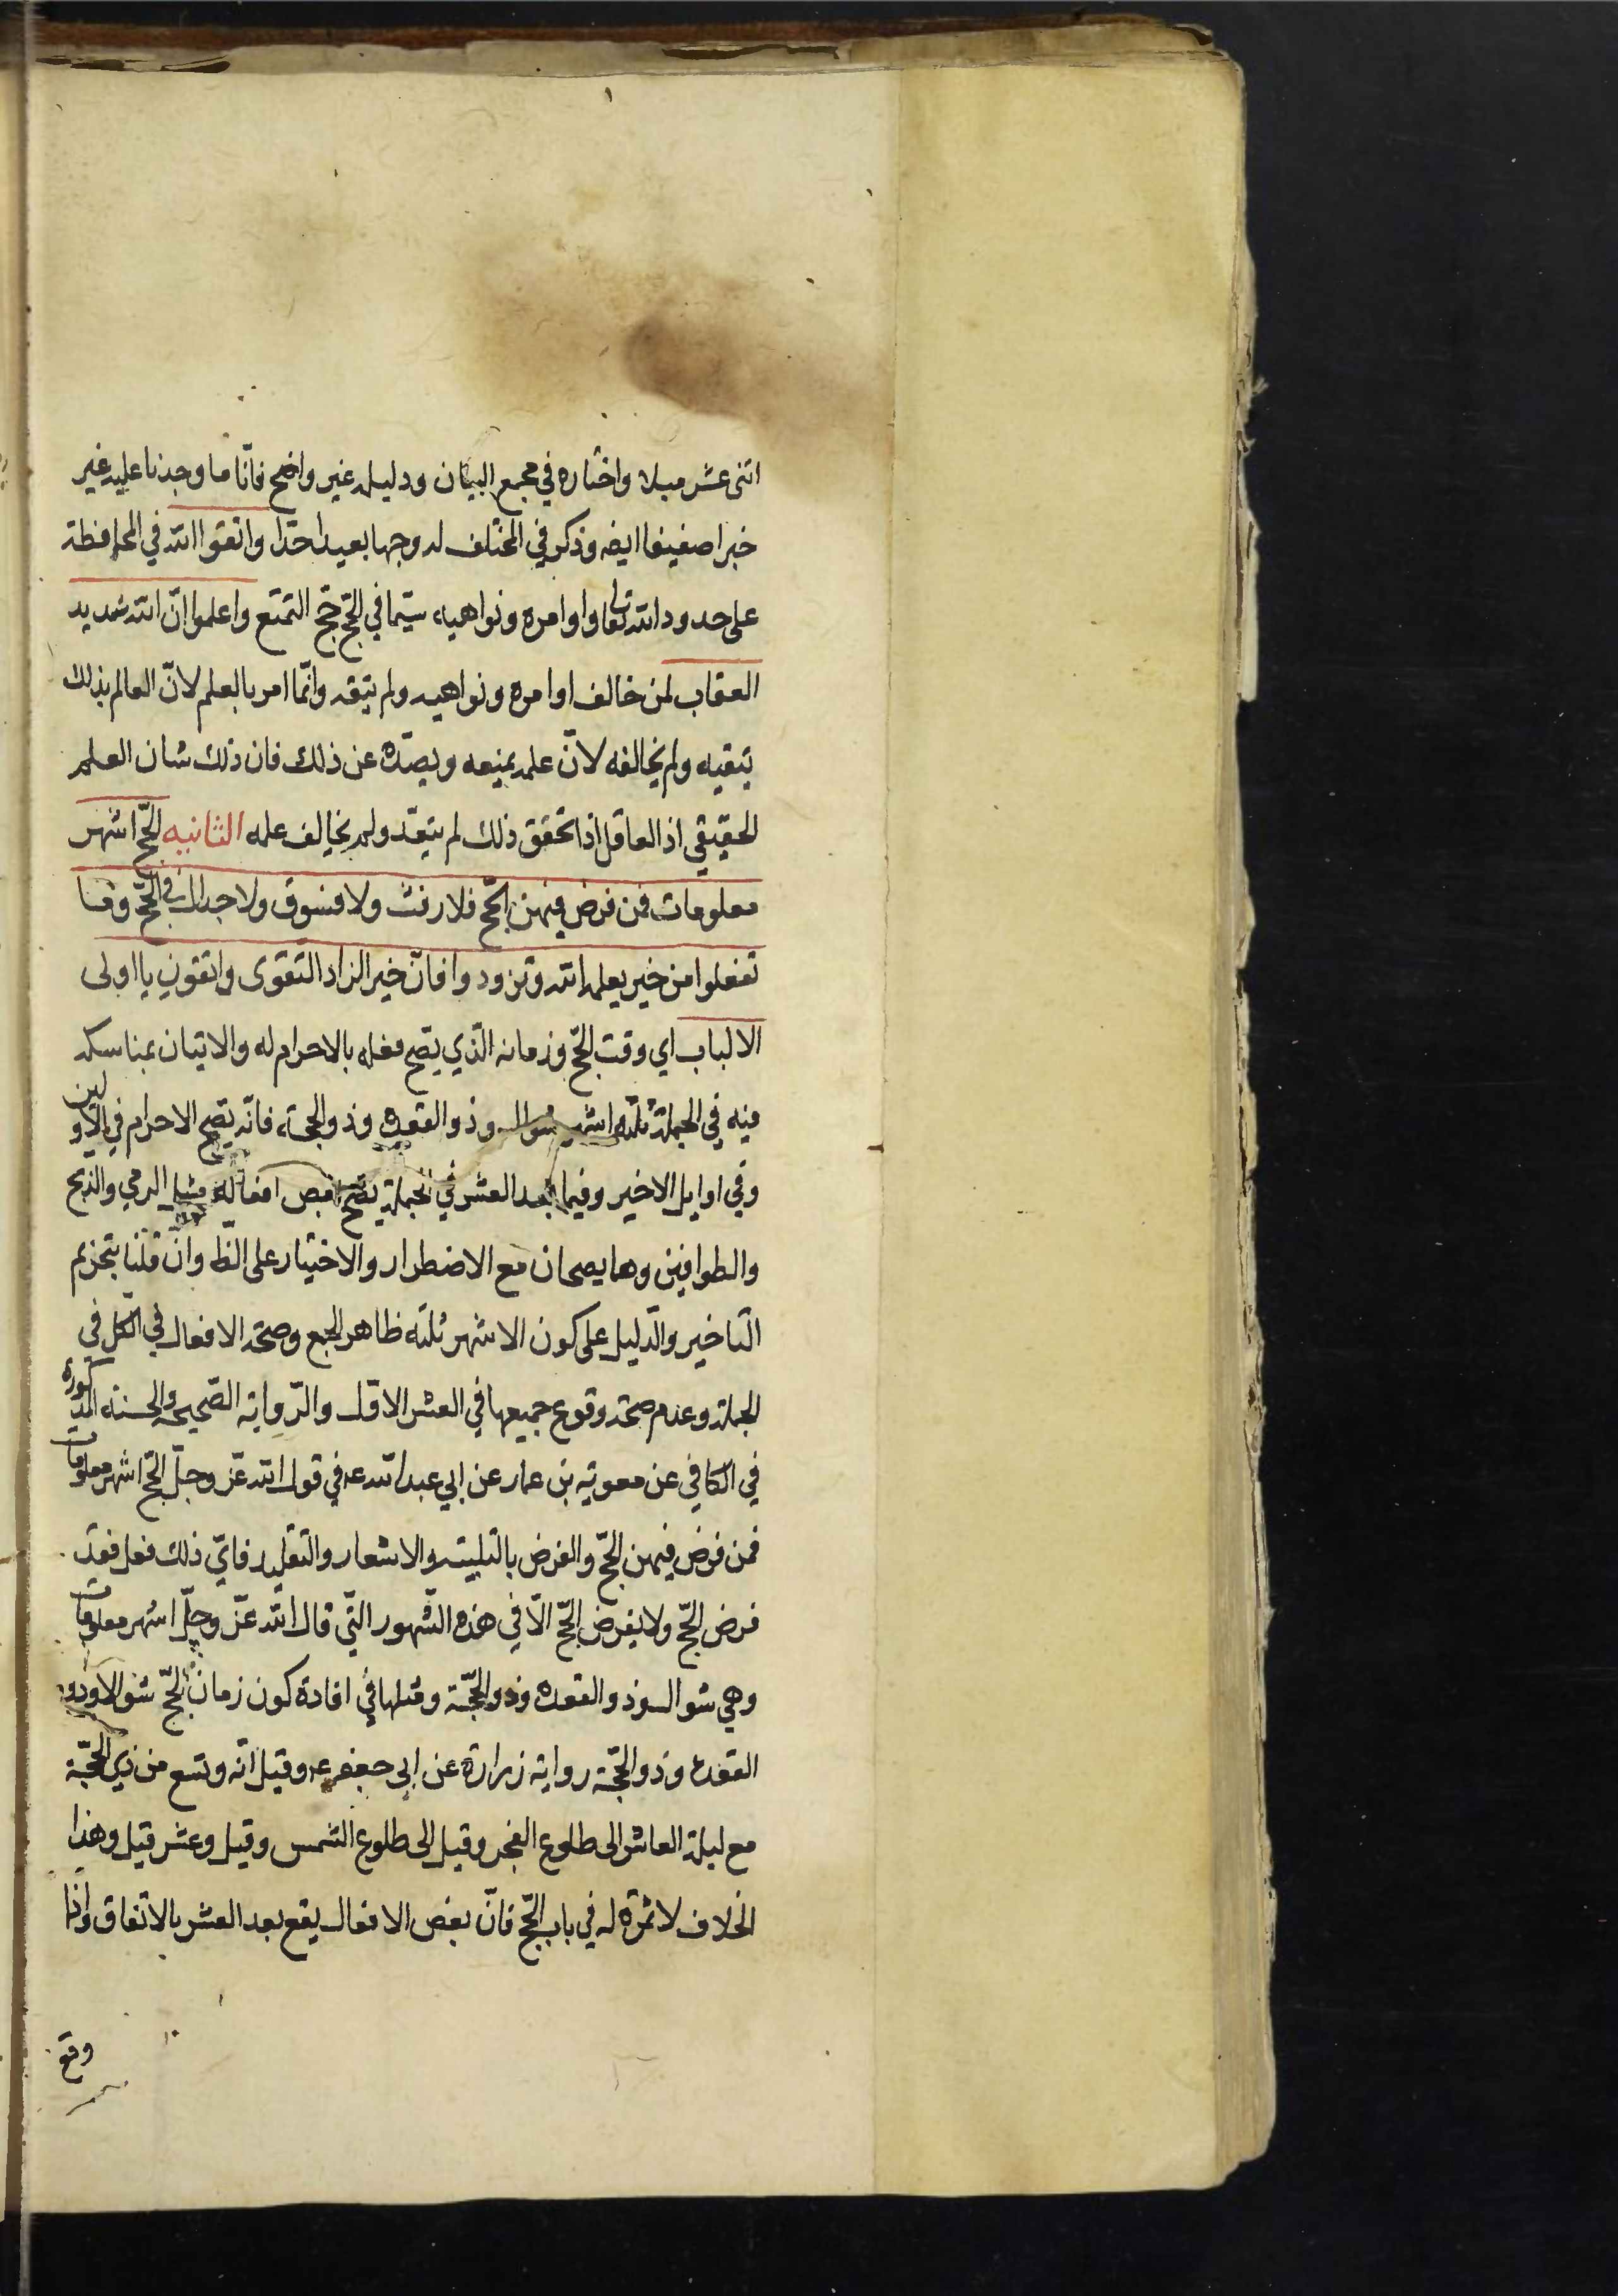 اثنى عشر ميلا واختاره في مجمع البيان ودليله غير واضح فانّا ما وجدنا عليه غير
خبرا ضعيفا ايضه وذكر في المختلف له وجها بعيدا جدا واتقوا الله في المحافظة
على حدود الله تعا واوامره ونواهيه سيّما في الحّج حّج التمتع واعلموا انّ الله شديد
العقاب لمن خالف اوامره ونواهيه ولم يتقه وانّما امر بالعلم لانّ العالم بذلك
يتقيه ولم يخالفه لانّ علمه يمنعه ويصدّه عن ذلك فان ذلك شان العلم
الحقيقي اذ العاقل اذا تحقق ذلك لم يتعدّ ولم يخالف علمه الثانيه الحّج اشهر
معلومات فمن فرض فيهن الحّج فلا رفث ولا فسوق ولا جدال في الحّج وما
تفعلوا من خير يعلمه الله وتزودوا فانّ خير الزاد التقوى واتقون يا اولى
الالباب اي وقت الحّج وزمانه الّذي يصّح فعله بالاحرام له والاتيان بمناسكه
فيه في الجملة ثلثه اشهر شوال وذو القعده وذو الحجة فانّه يصّح الاحرام في الاولين
وفي اوايل الاخير وفيما بعد العشر في الجملة يصّح بعض افعاله مثل الرمي والذبح
والطوافين وهما يصحان مع الاضطرار والاختيار على الظ وان قلنا بتحريم
التاخير والدّليل على كون الاشهر ثلثه ظاهر الجمع وصحّة الافعال في الكل في
الجملة وعدم صحّة وقوع جميعها في العشر الاوّل والرّواية الصّحيحه والحسنه المذكوره
في الكافي عن معوية بن عمار عن ابي عبد الله عه في قول الله عّز وجلّ الحّج اشهر معلومات
فمن فرض فيهن الحّج والفرض بالتلبيته والاشعار والتقليد فايّ ذلك فعل فقد
فرض الحّج ولا يفرض الحّج الّا في هذه الشّهور الّتي قال الله عزّ وجلّ اشهر معلومات
وهي شوال وذو القعده وذو الحجّة ومثلها في افادة كون زمان الحّج شوالا وذو
القعده وذو الحجّة رواية زرارة عن ابي جعفر عه وقيل انّه وتسع من ذي الحجّة
مع ليلة العاشر الى طلوع الفجر وقيل الى طلوع الشمس وقيل وعشر قيل وهذا
الخلاف لا ثمرة له في باب الحّج فانّ بعض الافعال يقع بعد العشر بالاتفاق واذا
وقع